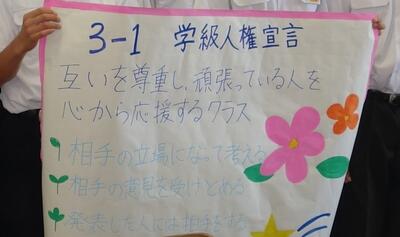 3-1 学級人権宣言
互いを尊重し、頑張っている人を
心から応援するクラス
相手の立場になって考える
相手の意見を受けとめる
発表した人には拍手をする